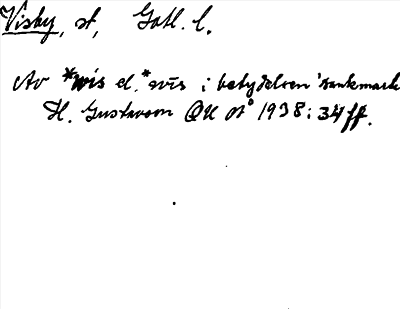 Visby, st, Gotl. l.
Av *wis el. *wīs i betydelsen 'sankmark
H. Gustavson GU åt 1938: 34 ff.